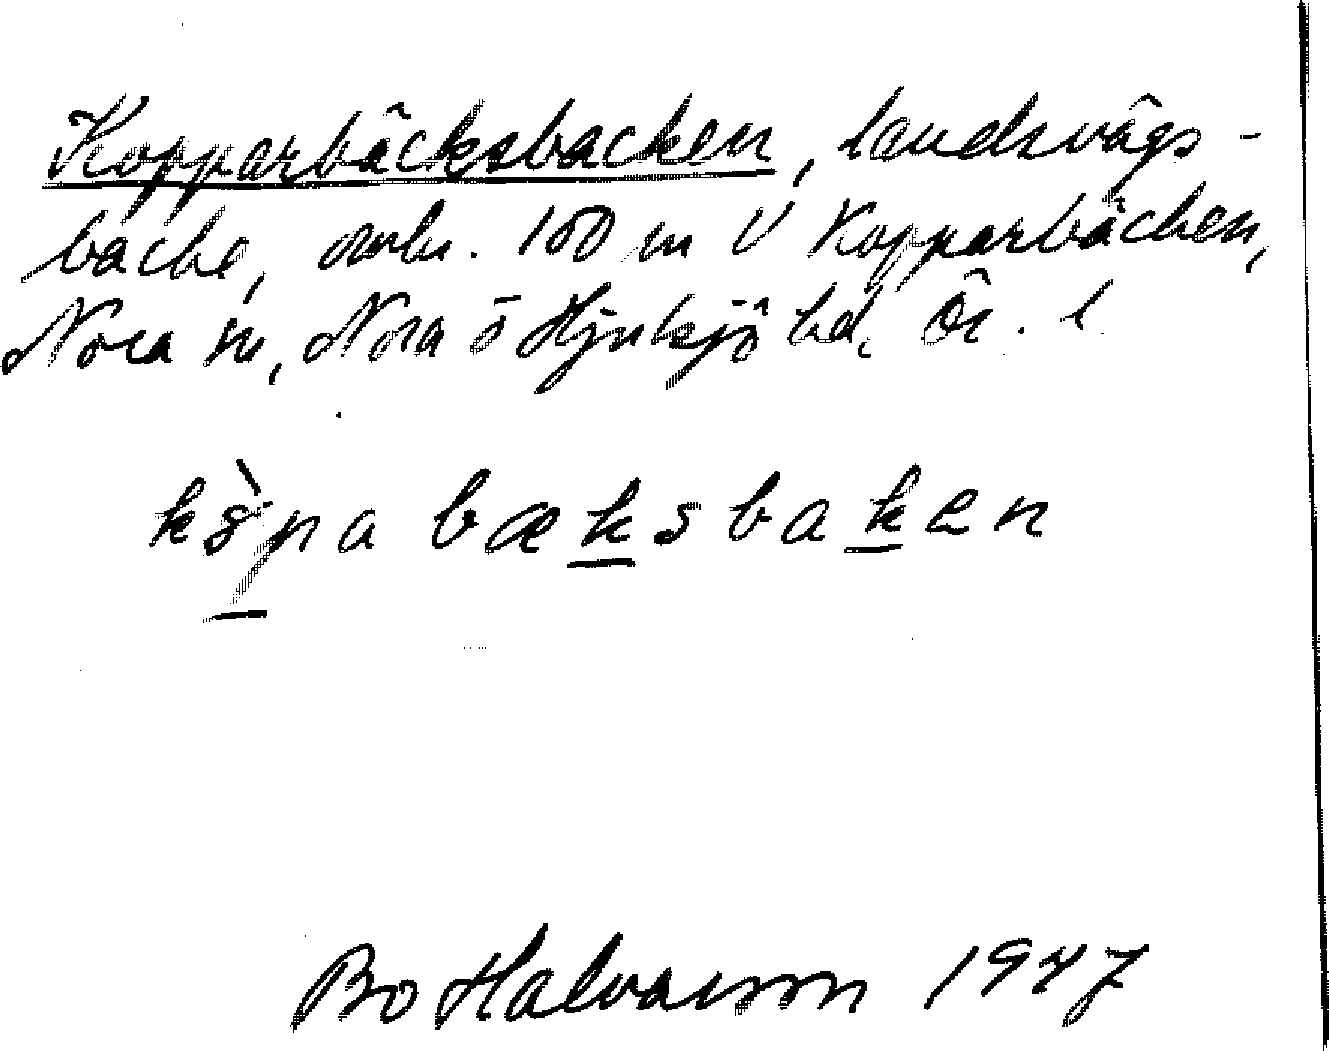 Kopparbäcksbacken, landsvägs-
backe, omkr. 100 m V Kopparbäcken,
Nora sn, Nora o Hjulsjö bd, Ör. l
kòpa bæksbaken
Bo Halvarson 1947